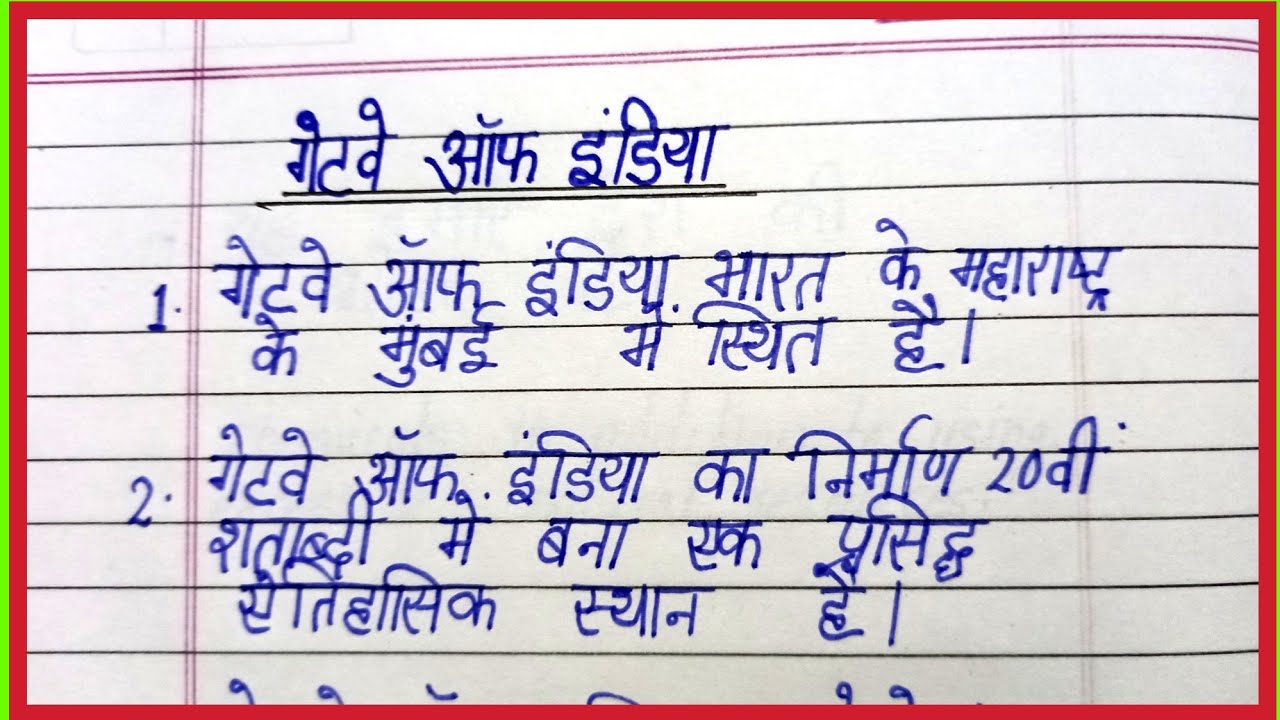 गेटवे ऑफ इंडिया
1. गेटवे ऑफ इंडिया भारत के महाराष्ट्र
के मुंबई में स्थित है।
2. गेटवे ऑफ इंडिया का निर्माण 20वीं
शताब्दी मे बना एक प्रसिद्ध
ऐतिहासिक स्थान है।